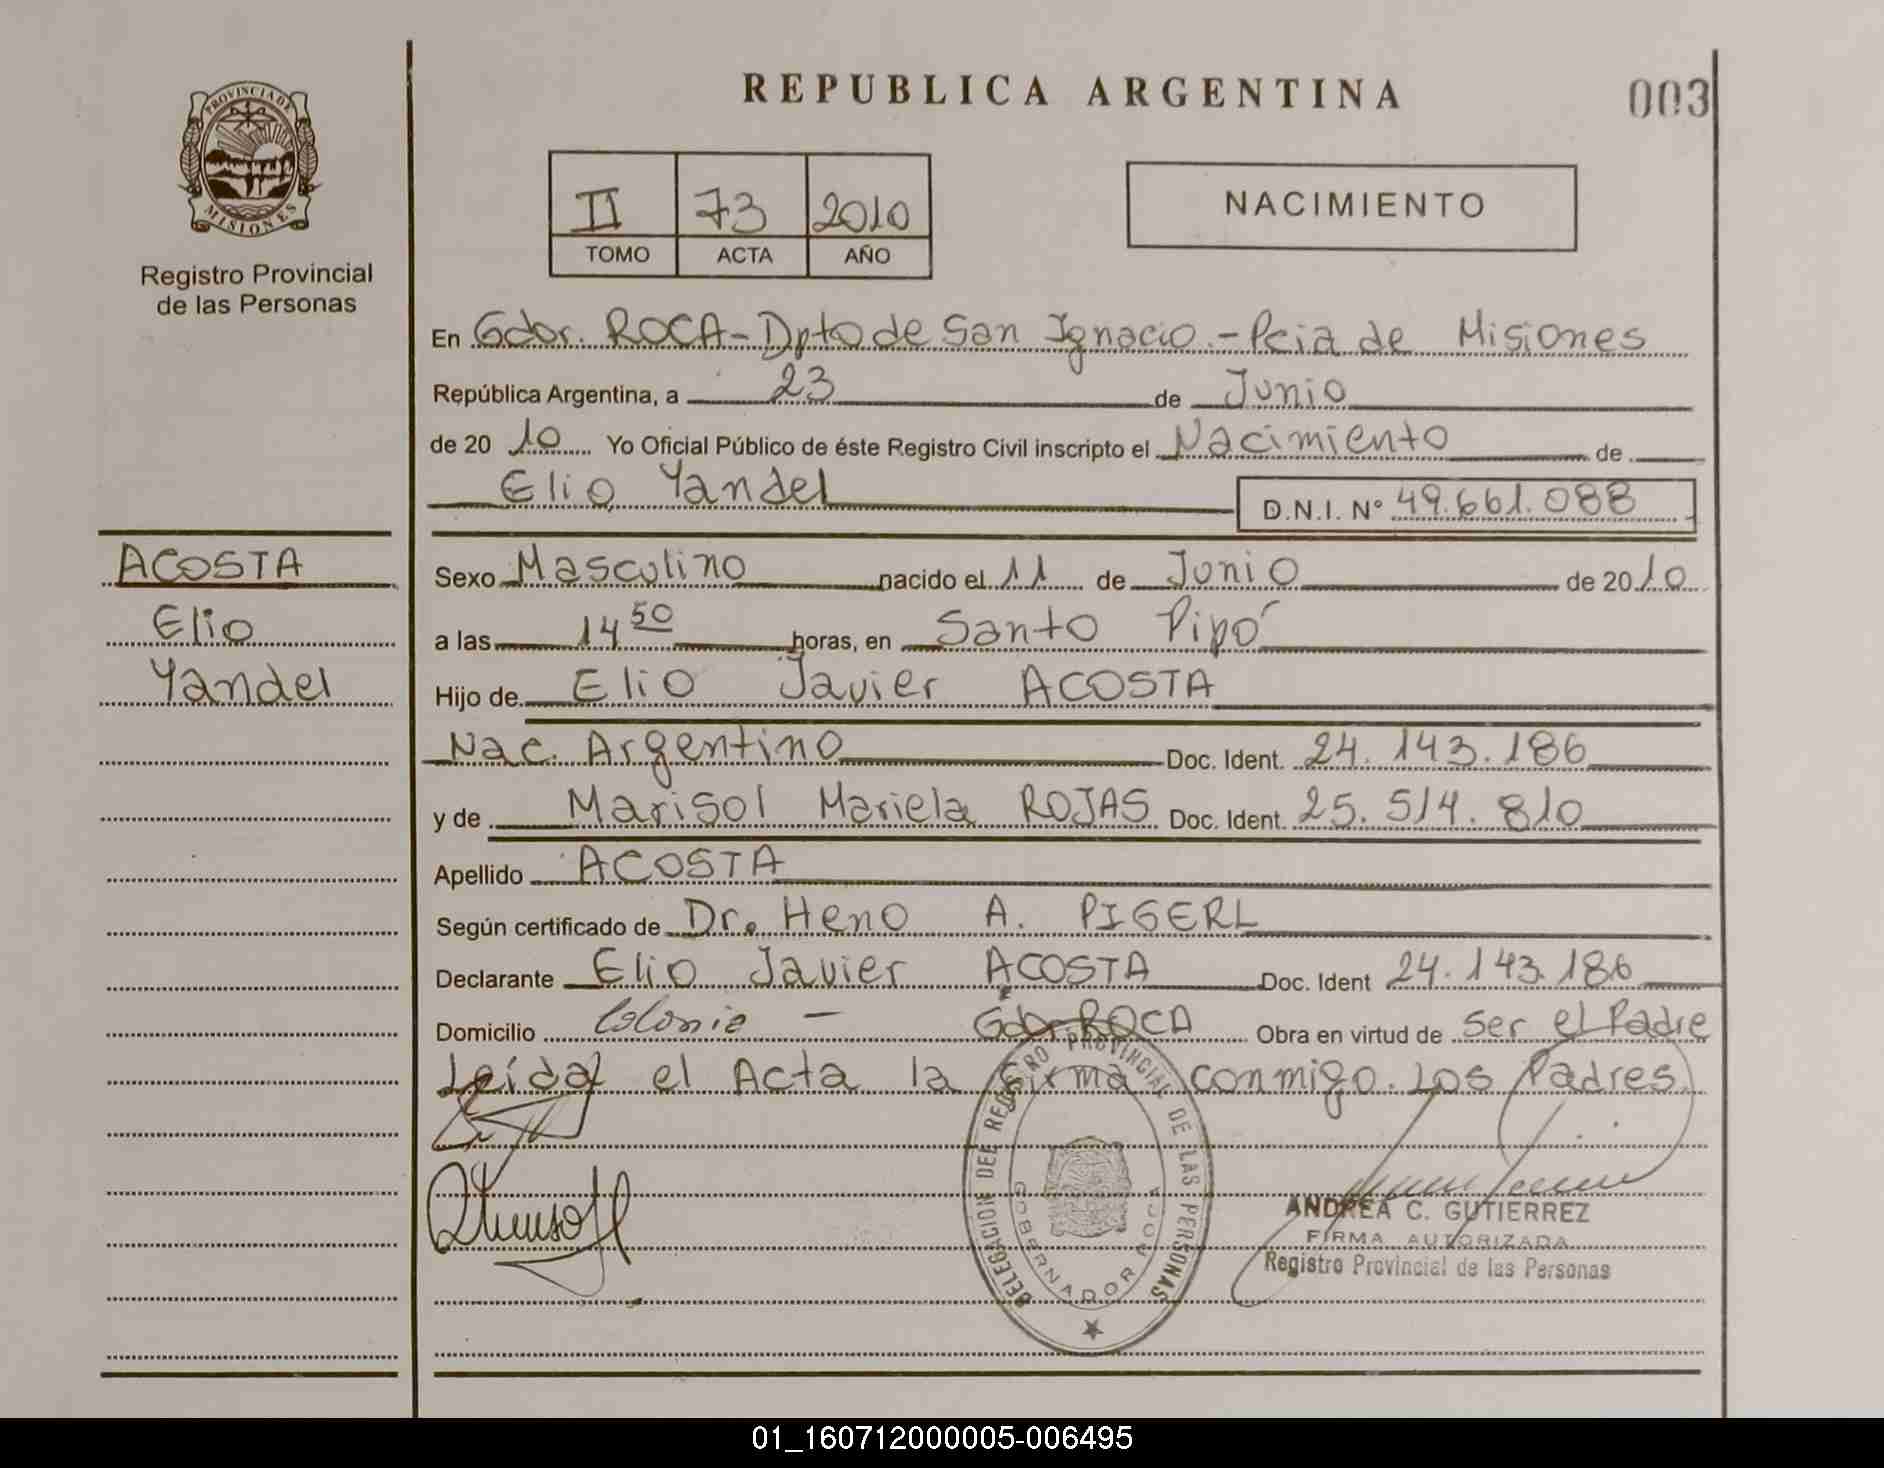 REPUBLICA ARGENTINA
003
PROVINCIA DE
MISIONES
Registro Provincial
de las Personas
II 73 2010
TOMO ACTA AÑO
NACIMIENTO
En Gdor. ROCA - Dpto de San Ignacio. - Pcia de Misiones
República Argentina, a 23 de Junio
de 20 10 Yo Oficial Público de éste Registro Civil inscripto el Nacimiento de
Elio Yandel D.N.I. Nº 49.661.088
ACOSTA
Elio
Yandel
Sexo Masculino nacido el 11 de Junio de 2010
a las 14 50 horas, en Santo Pipó
Hijo de Elio Javier ACOSTA
Nac. Argentino Doc. Ident. 24.143.186
y de Marisol Mariela ROJAS Doc. Ident. 25.514.810
Apellido ACOSTA
Según certificado de Dr. Heno A. PIGERL
Declarante Elio Javier ACOSTA Doc. Ident 24.143.186
Domicilio Colonia - Gdor ROCA Obra en virtud de ser el Padre
Leída el Acta la firma conmigo. Los Padres
DELEGACION DEL REGISTRO PROVINCIAL DE LAS PERSONAS
GOBERNADOR ROCA
ANDREA C. GUTIERREZ
FIRMA AUTORIZADA
Registro Provincial de las Personas
01_160712000005-006495